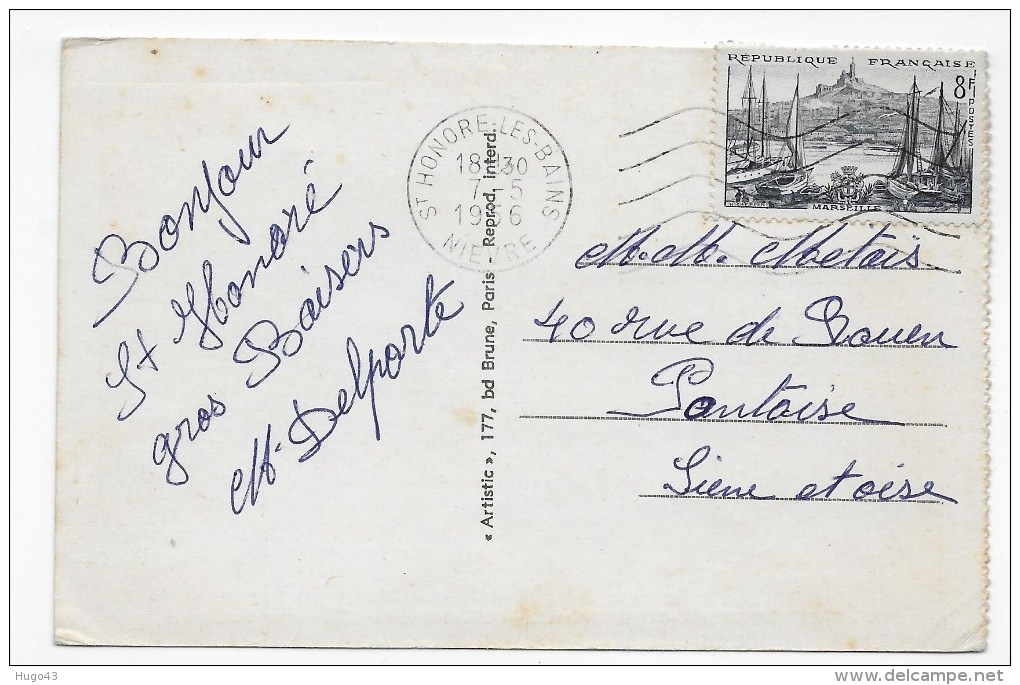 Bonjour
St Honoré
gros Baisers
M. Delporte
ST HONORE-LES-BAINS
18 30
7-5
NIEVRE
« Artistic », 177, bd Brune, Paris - Reprod. interd.
RÉPUBLIQUE FRANÇAISE
8F
POSTES
MARSEILLE
M.M. Metais
40 rue de Rouen
Pontoise
Siene et oise
Hugo43
delcampe.net